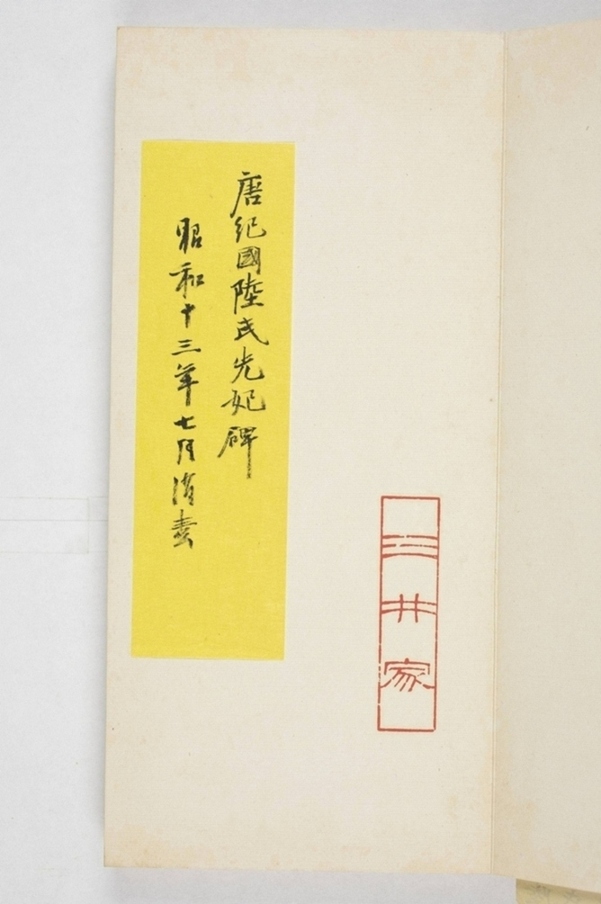 唐紀國陸氏先妃碑
昭和十三年七月消毒
三井家